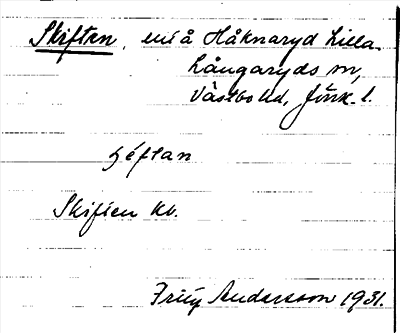 Skiftan, in å Håknaryd Lilla
Långaryds sn,
Västbo hd, Jönk. l.
ʃéftan
Skiften kv.
Andersson 1931.